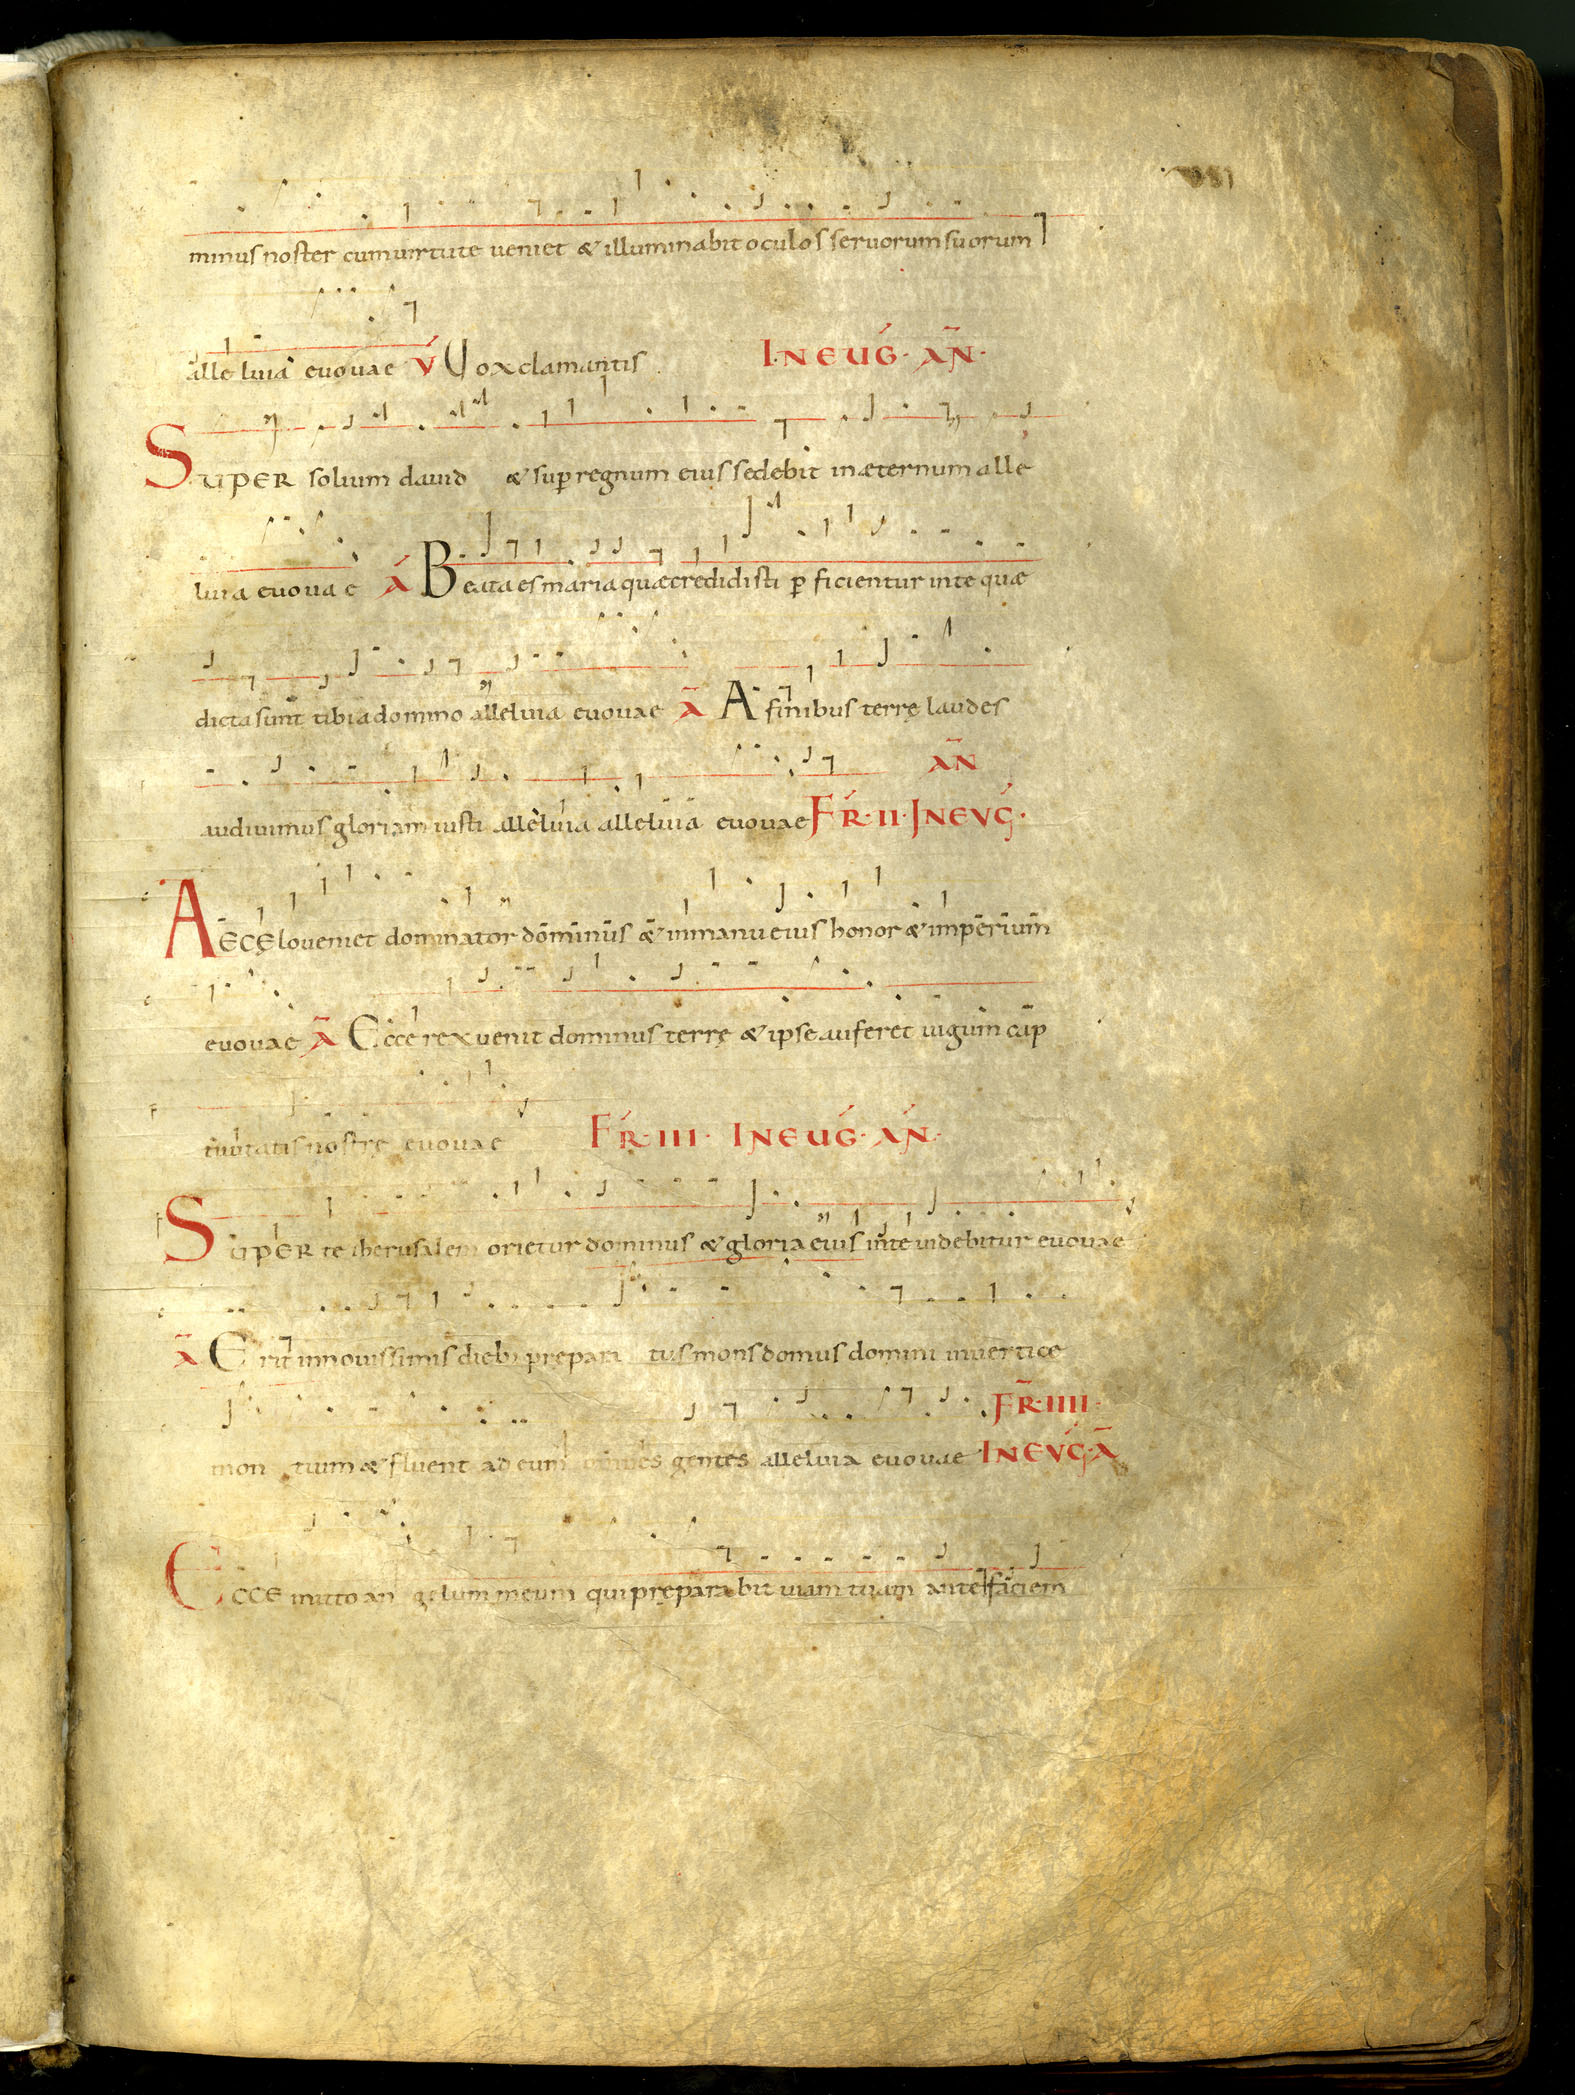 minus noster cum uirtute ueniet & illuminabit oculos seruorum suorum
alleluia euouae V Uox clamantis. IN EUG. AN.
SUPER solium dauid & sup regnum eius sedebit in æternum alle
luia euouae A Beata es maria quæ credidisti p ficientur in te quæ
dicta sunt tibi a domino alleluia euouae A A finibus terrę laudes
AN
audiuimus gloriam iusti alleluia alleluia euouae FR. II. IN EVG.
A ECĘlo ueniet dominator dominus & in manu eius honor & imperium
euouae A Ecce rex uenit dominus terrę & ipse auferet iugum cap
tiuitatis nostrę euouae FR. III. IN EUG. AN.
SUPER te iherusalem orietur dominus & gloria eius in te uidebitur euouae
A Erit in nouissimis dieb; prepara tus mons domus domini in uertice
FR. IIII.
mon tium & fluent ad eum omnes gentes alleluia euouae IN EVG. A
ECCE mitto an gelum meum qui pręparabit uiam tuam ante faciem